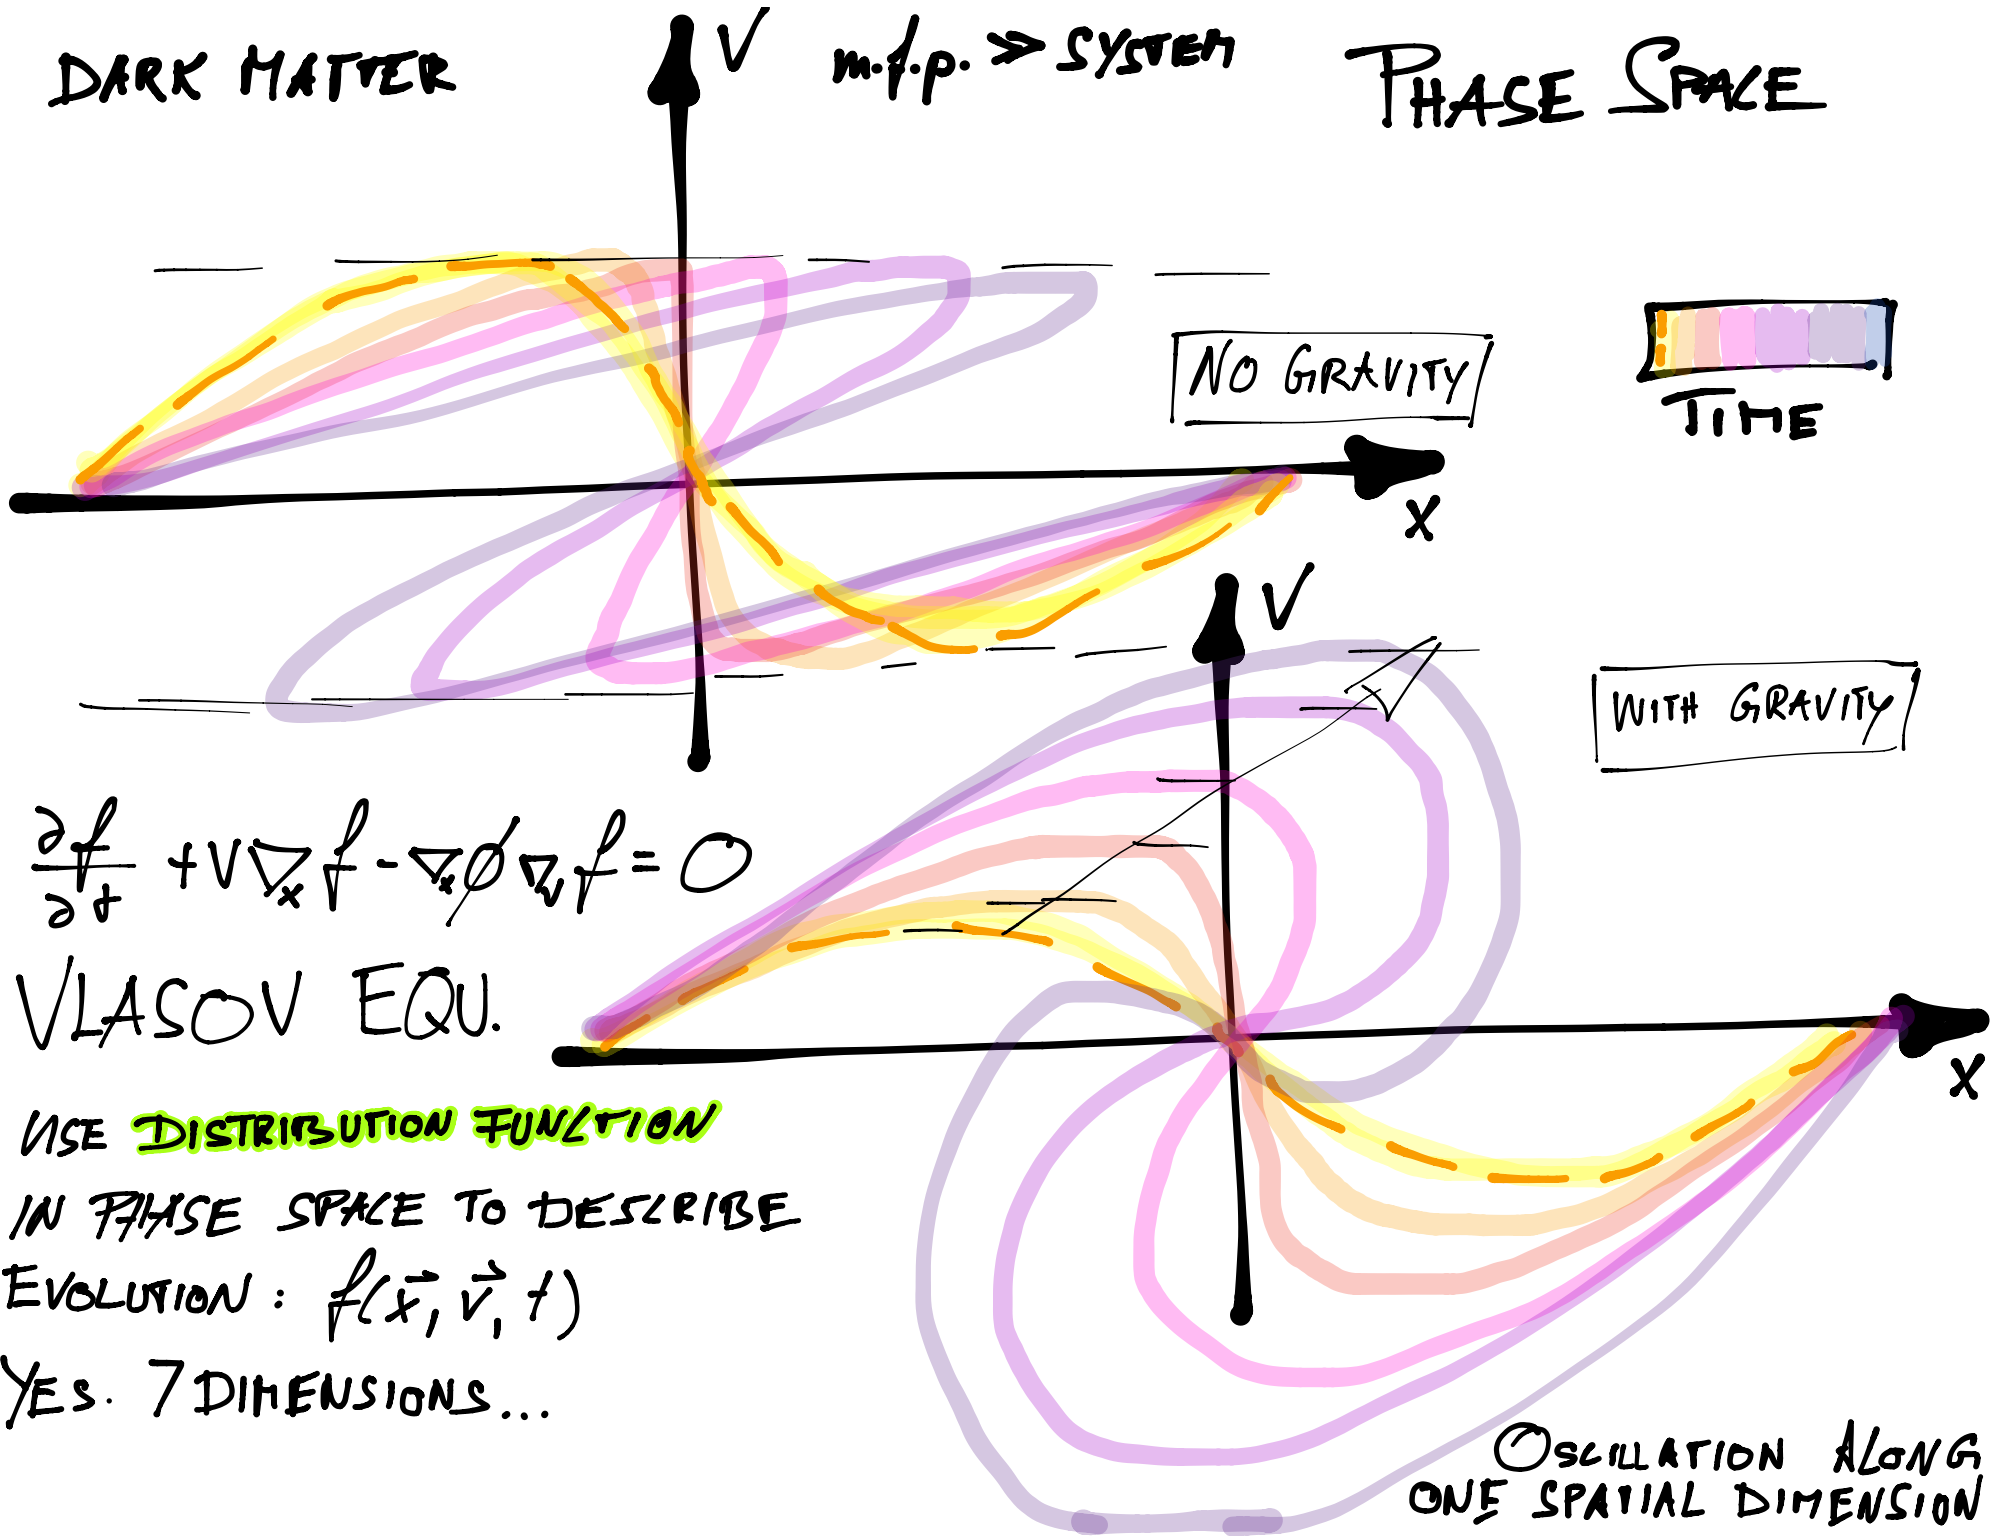 DARK MATTER
V
m.f.p. >> SYSTEM
PHASE SPACE
NO GRAVITY
TIME
X
V
WITH GRAVITY
∂f/∂t + V∇ₓf - ∇ₓϕ∇ᵥf = 0
VLASOV EQU.
X
USE DISTRIBUTION FUNCTION
IN PHASE SPACE TO DESCRIBE
EVOLUTION: f(x⃗, v⃗, t)
YES. 7 DIMENSIONS...
OSCILLATION ALONG
ONE SPATIAL DIMENSION